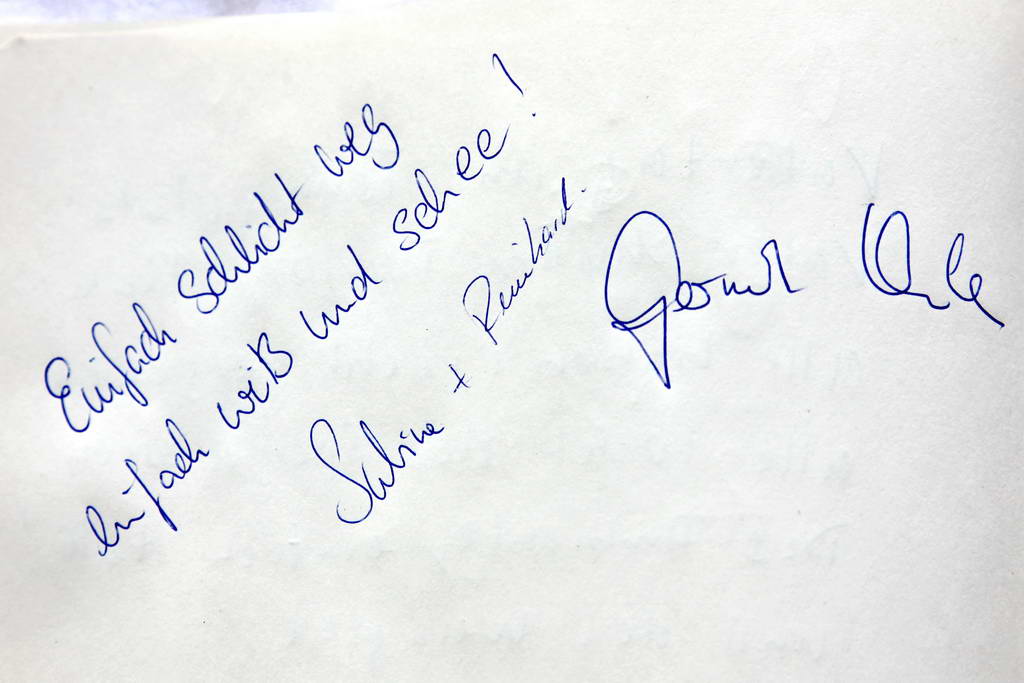 Einfach schlicht weg
einfach weiß und schee!
Sabine + Reinhard.